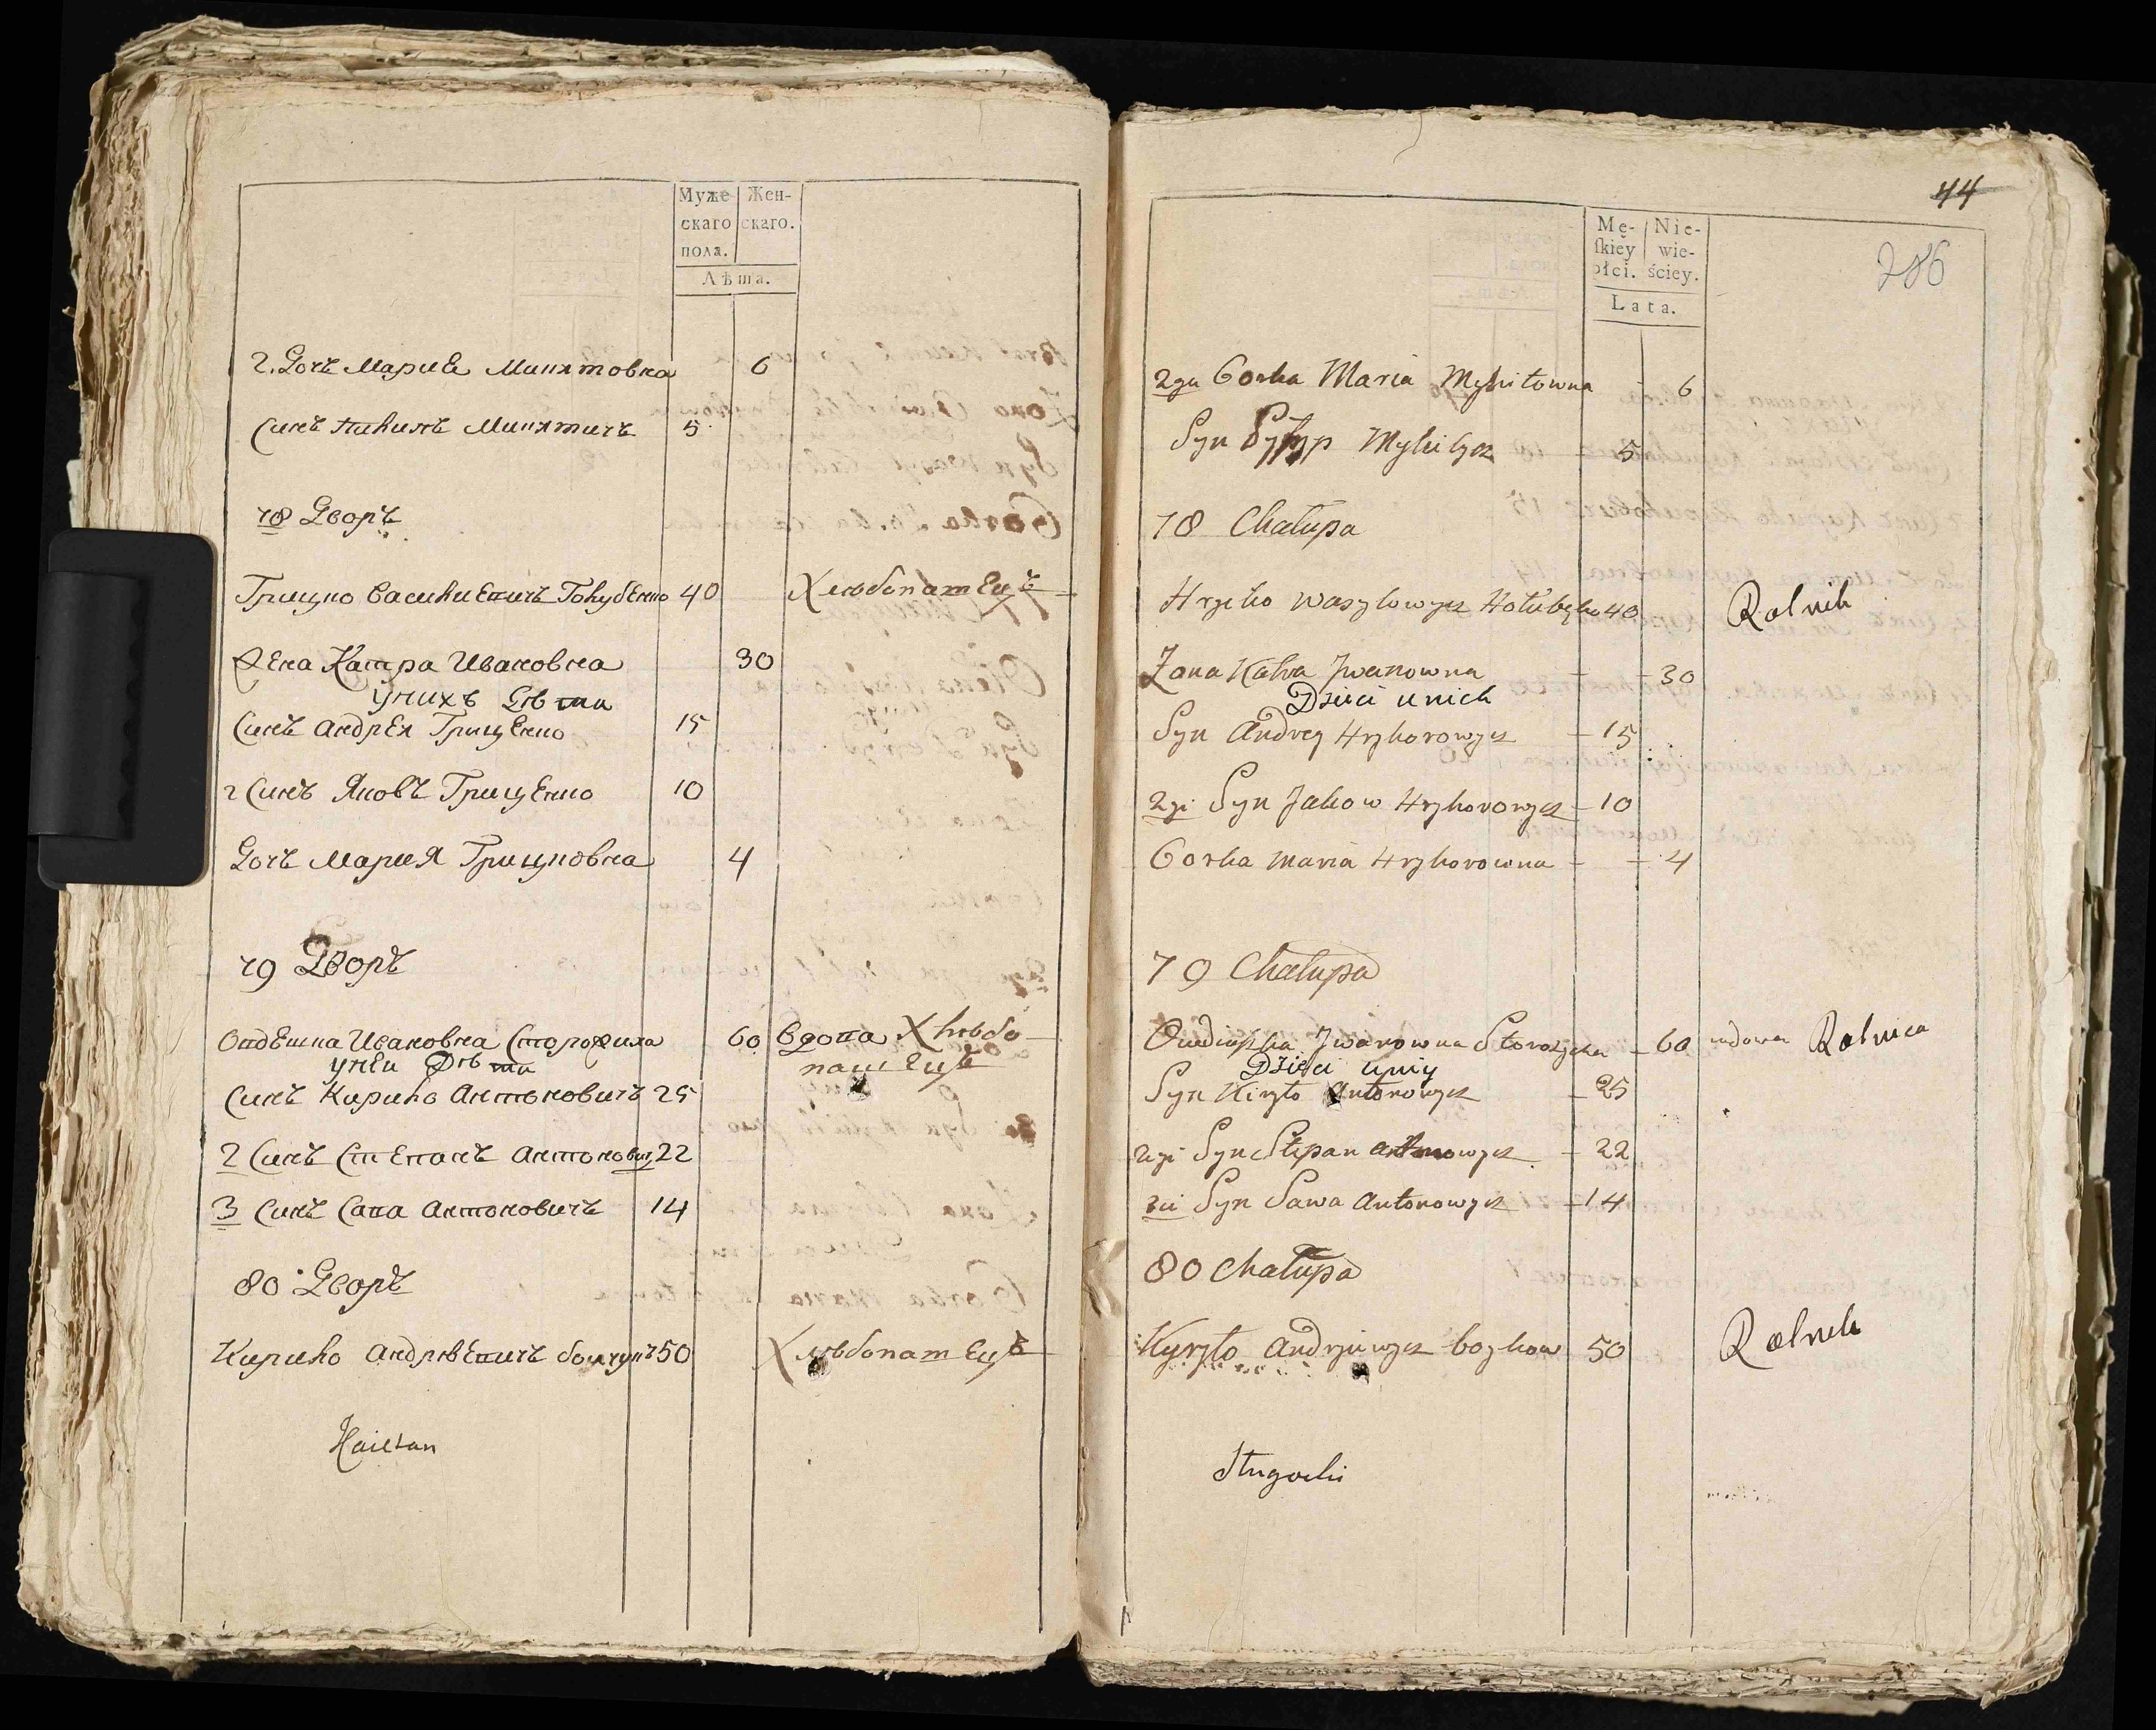 Муже- Жен-
скаго скаго.
пола.
Лѣта.
2. Дочь Мария Микитовна 6
Синъ Пилипъ Микитичъ 5
78 Дворъ
Грицко Василиевичъ Голубенко 40 Хлѣбопашецъ
Жена Катра Ивановна 30
у нихъ дѣти
Синъ Андрей Гриценко 15
2 Синъ Яковъ Гриценко 10
Дочь Мария Грицковна 4
79 Дворъ
Овдешка Ивановна Сторожиха 60 вдова Хлѣбо-
у неи дѣти пашецъ
Синъ Кирило Антоновичъ 25
2 Синъ Степанъ Антонович 22
3 Синъ Сава Антоновичъ 14
80 Дворъ
Кирило Андрѣевичъ 50 Хлѣбопашецъ
44
286
Mę- Nie-
skiey wie-
płci. ściey.
Lata.
2ga Corka Maria Mykitowna 6
Syn Mykitycz 5
78 Chałupa
Hryćko Wasylowycz Hołubęko 40 Rolnik
Zona Katra Jwanowna 30
Dzieci u nich
Syn Andrey Hryhorowycz 15
2gi Syn Jakow Hryhorowycz 10
Corka Maria Hryhorowna 4
79 Chałupa
Owdiuszka Jwanowna Storożycha 60 wdowa Rolnica
Dzieci u niy
Syn Kiryło Antonowycz 25
2gi Syn Stepan Antonowycz 22
3ci Syn Sawa Antonowycz 14
80 Chałupa
Kyryło Andryiewycz 50 Rolnik